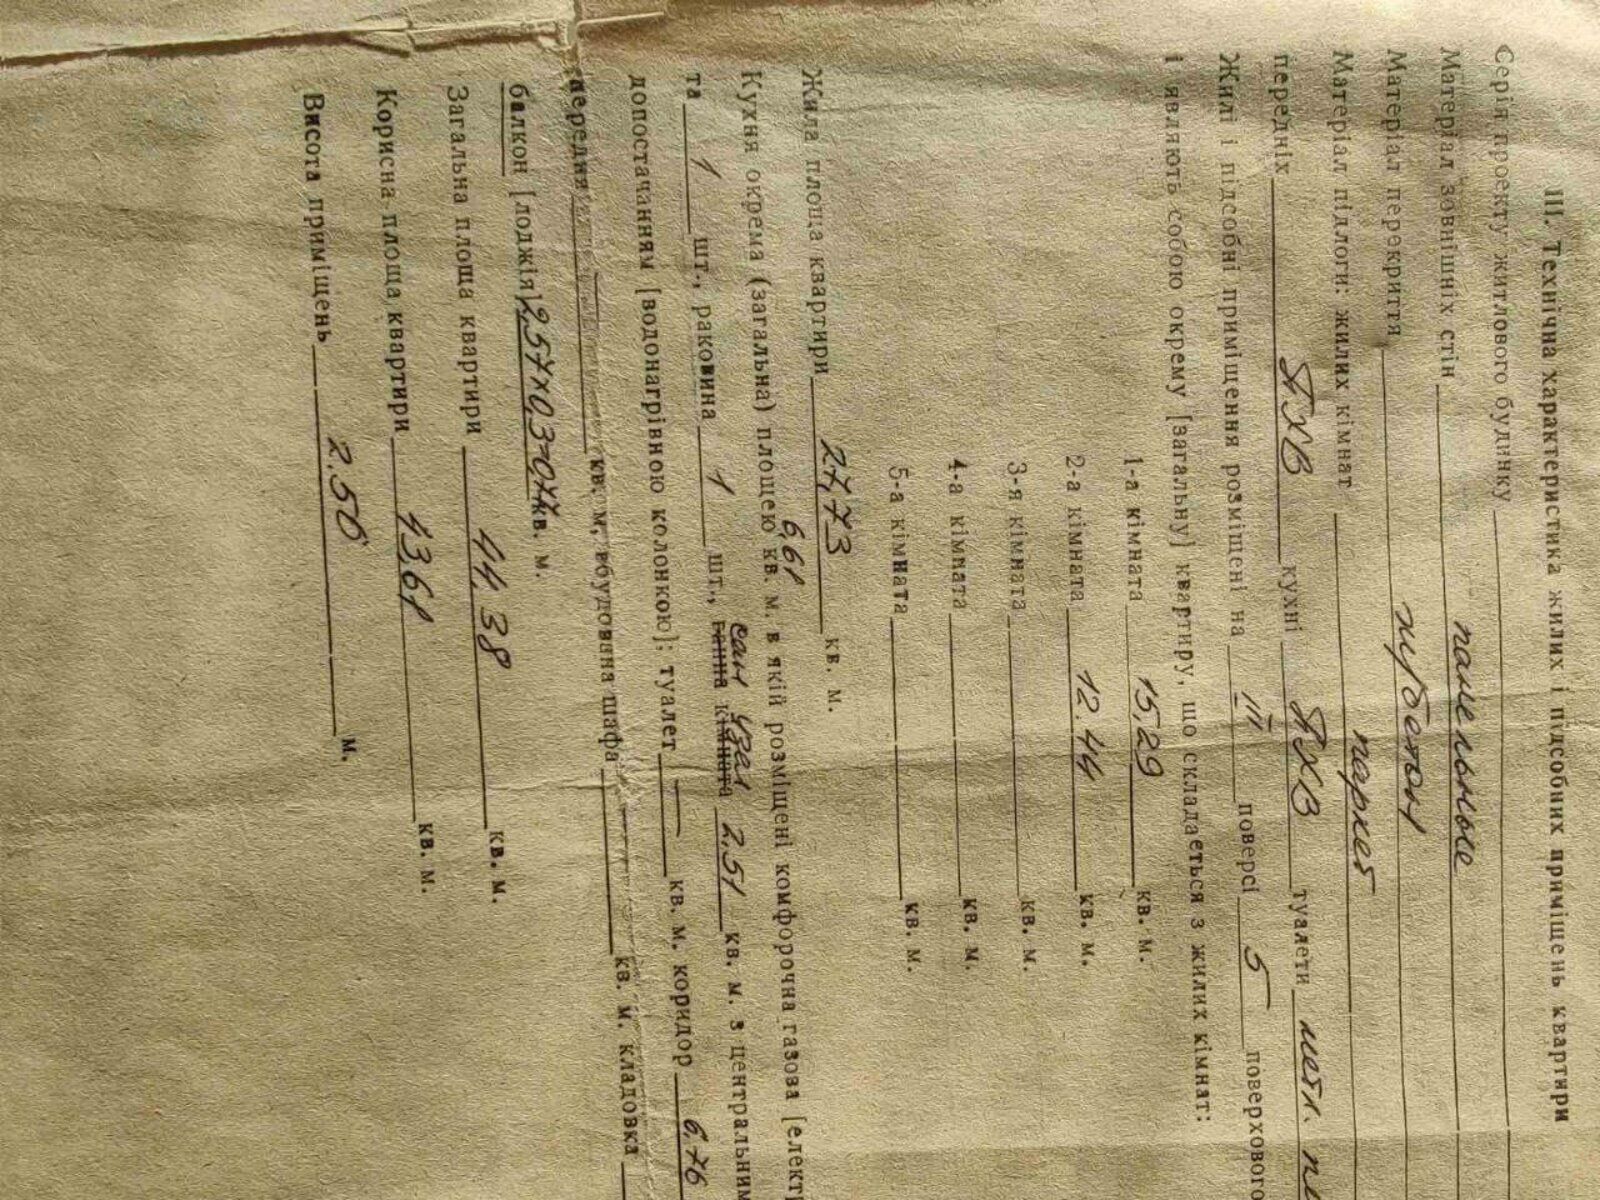 III. Технічна характеристика жилих і підсобних приміщень квартири
Серія проекту житлового будинку
Матеріал зовнішніх стін панельные
Матеріал перекриття ж/бетон
Матеріал підлоги: жилих кімнат паркет
передніх ПХВ кухні ПХВ туалети метл. пл
Жилі і підсобні приміщення розміщені на III поверсі 5 поверхового
і являють собою окрему [загальну] квартиру, що складається з жилих кімнат:
1-а кімната 15,29 кв. м.
2-а кімната 12.44 кв. м.
3-я кімната кв. м.
4-а кімната кв. м.
5-а кімната кв. м.
Жила площа квартири 27,73 кв. м.
Кухня окрема (загальна) площею 6,61 кв. м. в якій розміщені комфорочна газова [елект
та 1 шт., раковина 1 шт., ванна кімната сан узел 2,51 кв. м. з центральним
допостачанням [водонагрівною колонкою]; туалет — кв. м. коридор 6,76
передня — кв. м, вбудована шафа кв. м. кладовка
балкон [лоджія] 2,57х0,3=0,77 кв. м.
Загальна площа квартири 44,38 кв. м.
Корисна площа квартири 43,61 кв. м.
Висота приміщень 2.50 м.